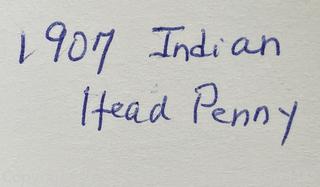 1907 Indian
Head Penny